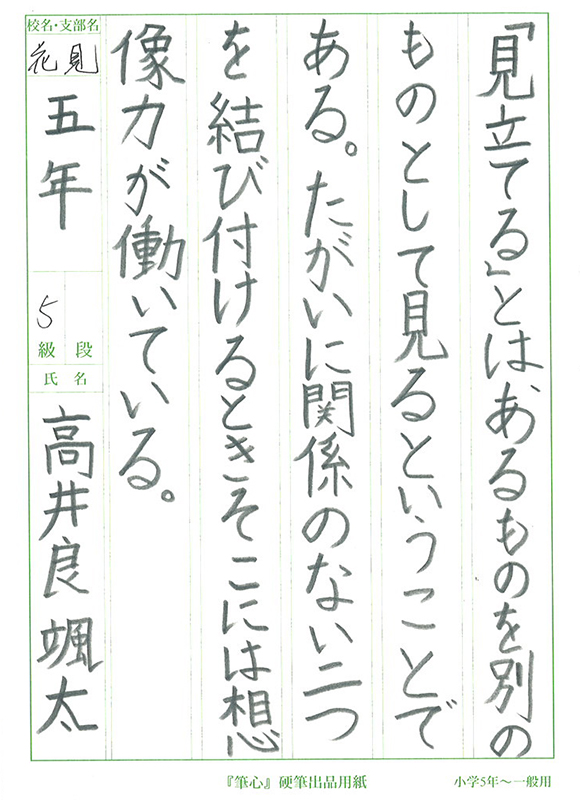 「見立てる」とは、あるものを別の
ものとして見るということで
ある。たがいに関係のない二つ
を結び付けるときそこには想
像力が働いている。
校名・支部名
花見
五年
5
級 段
氏 名
高井良 颯太
『筆心』硬筆出品用紙
小学5年～一般用